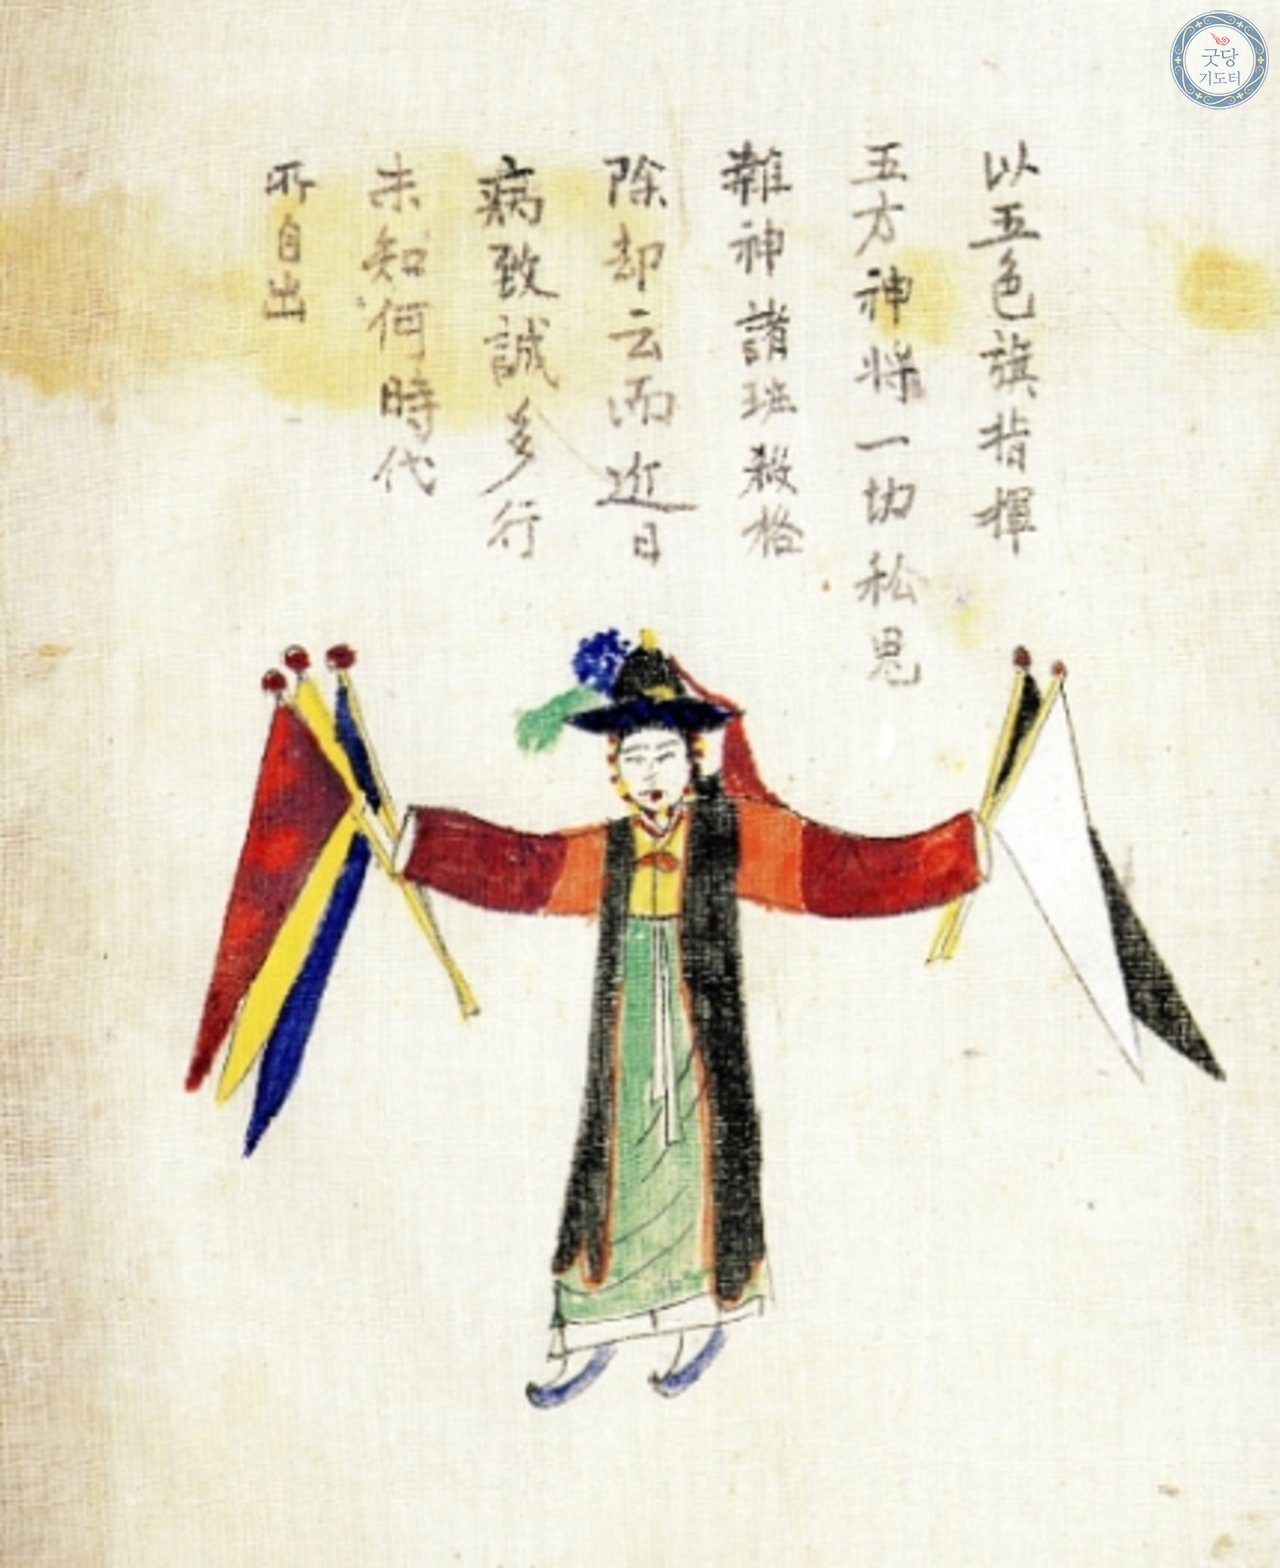 以五色旗指揮
五方神將一切私鬼
雜神諸班殺格
除却云而近日
病致誠多行
未知何時代
所自出
굿당
기도터